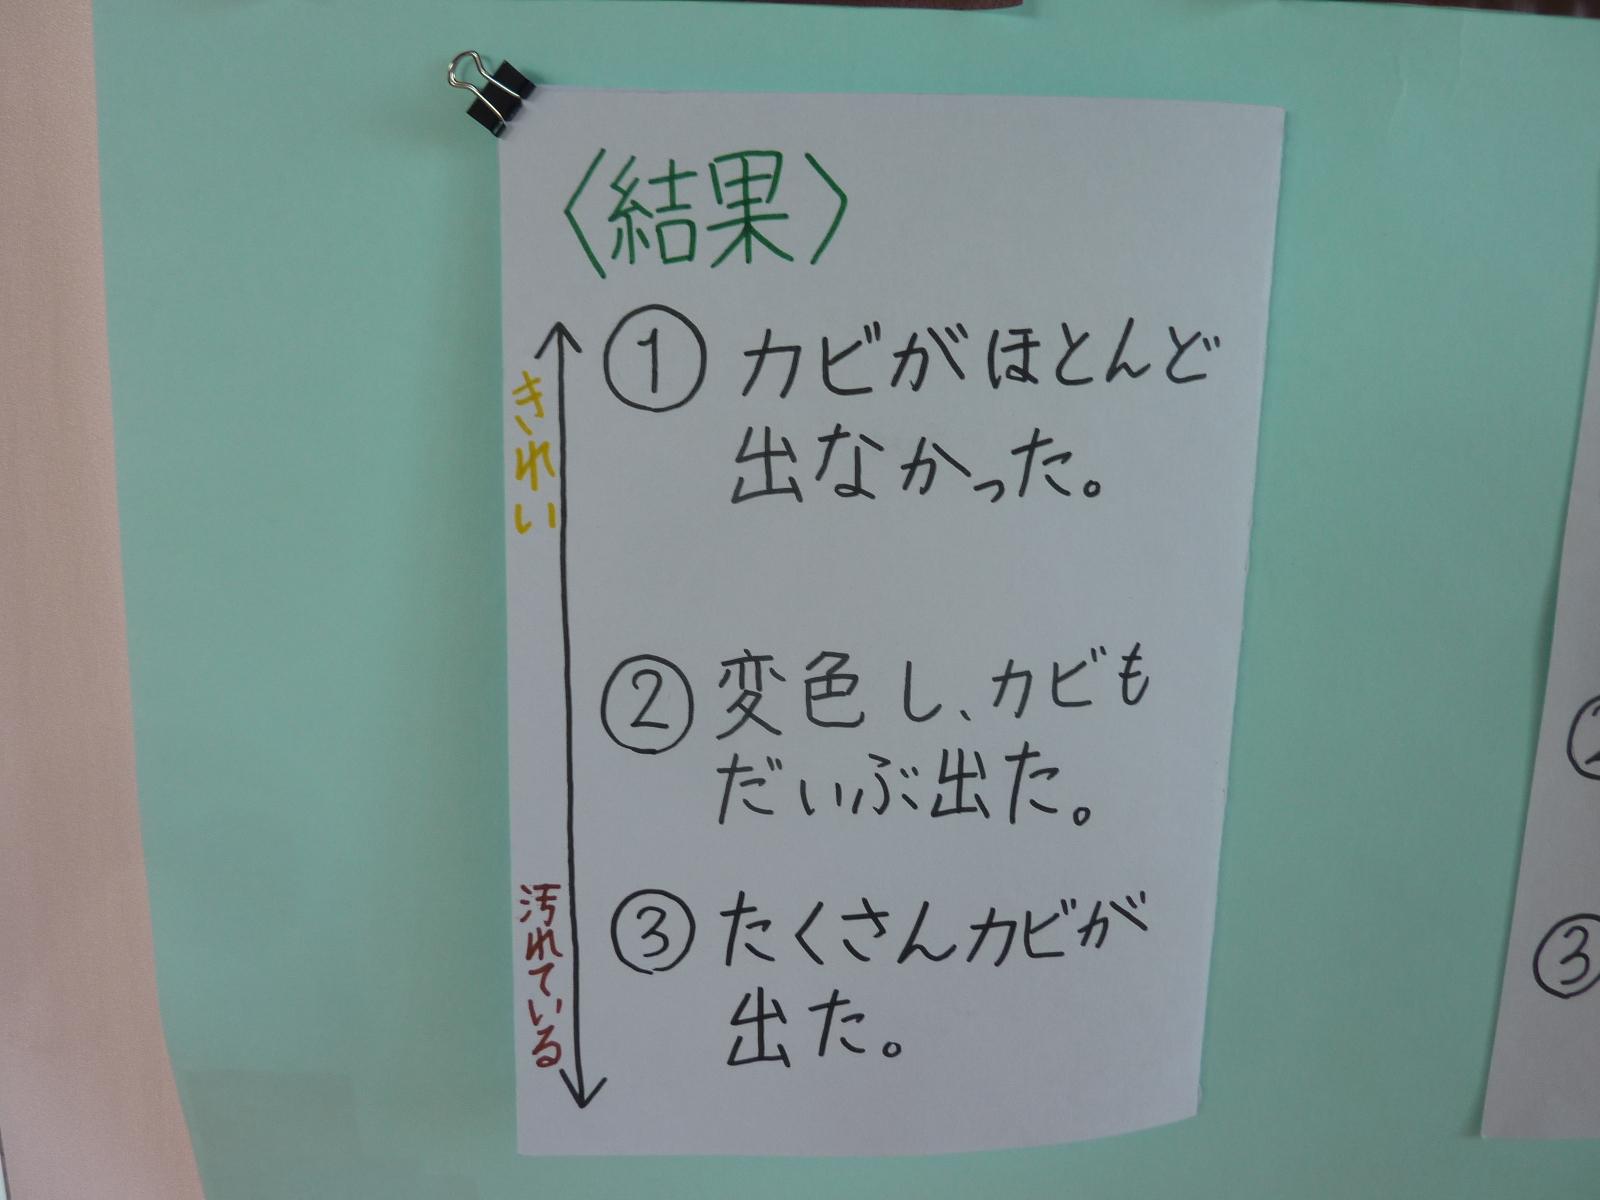 〈結果〉
きれい
①カビがほとんど
出なかった。
②変色し、カビも
だいぶ出た。
汚れている
③たくさんカビが
出た。
②
③